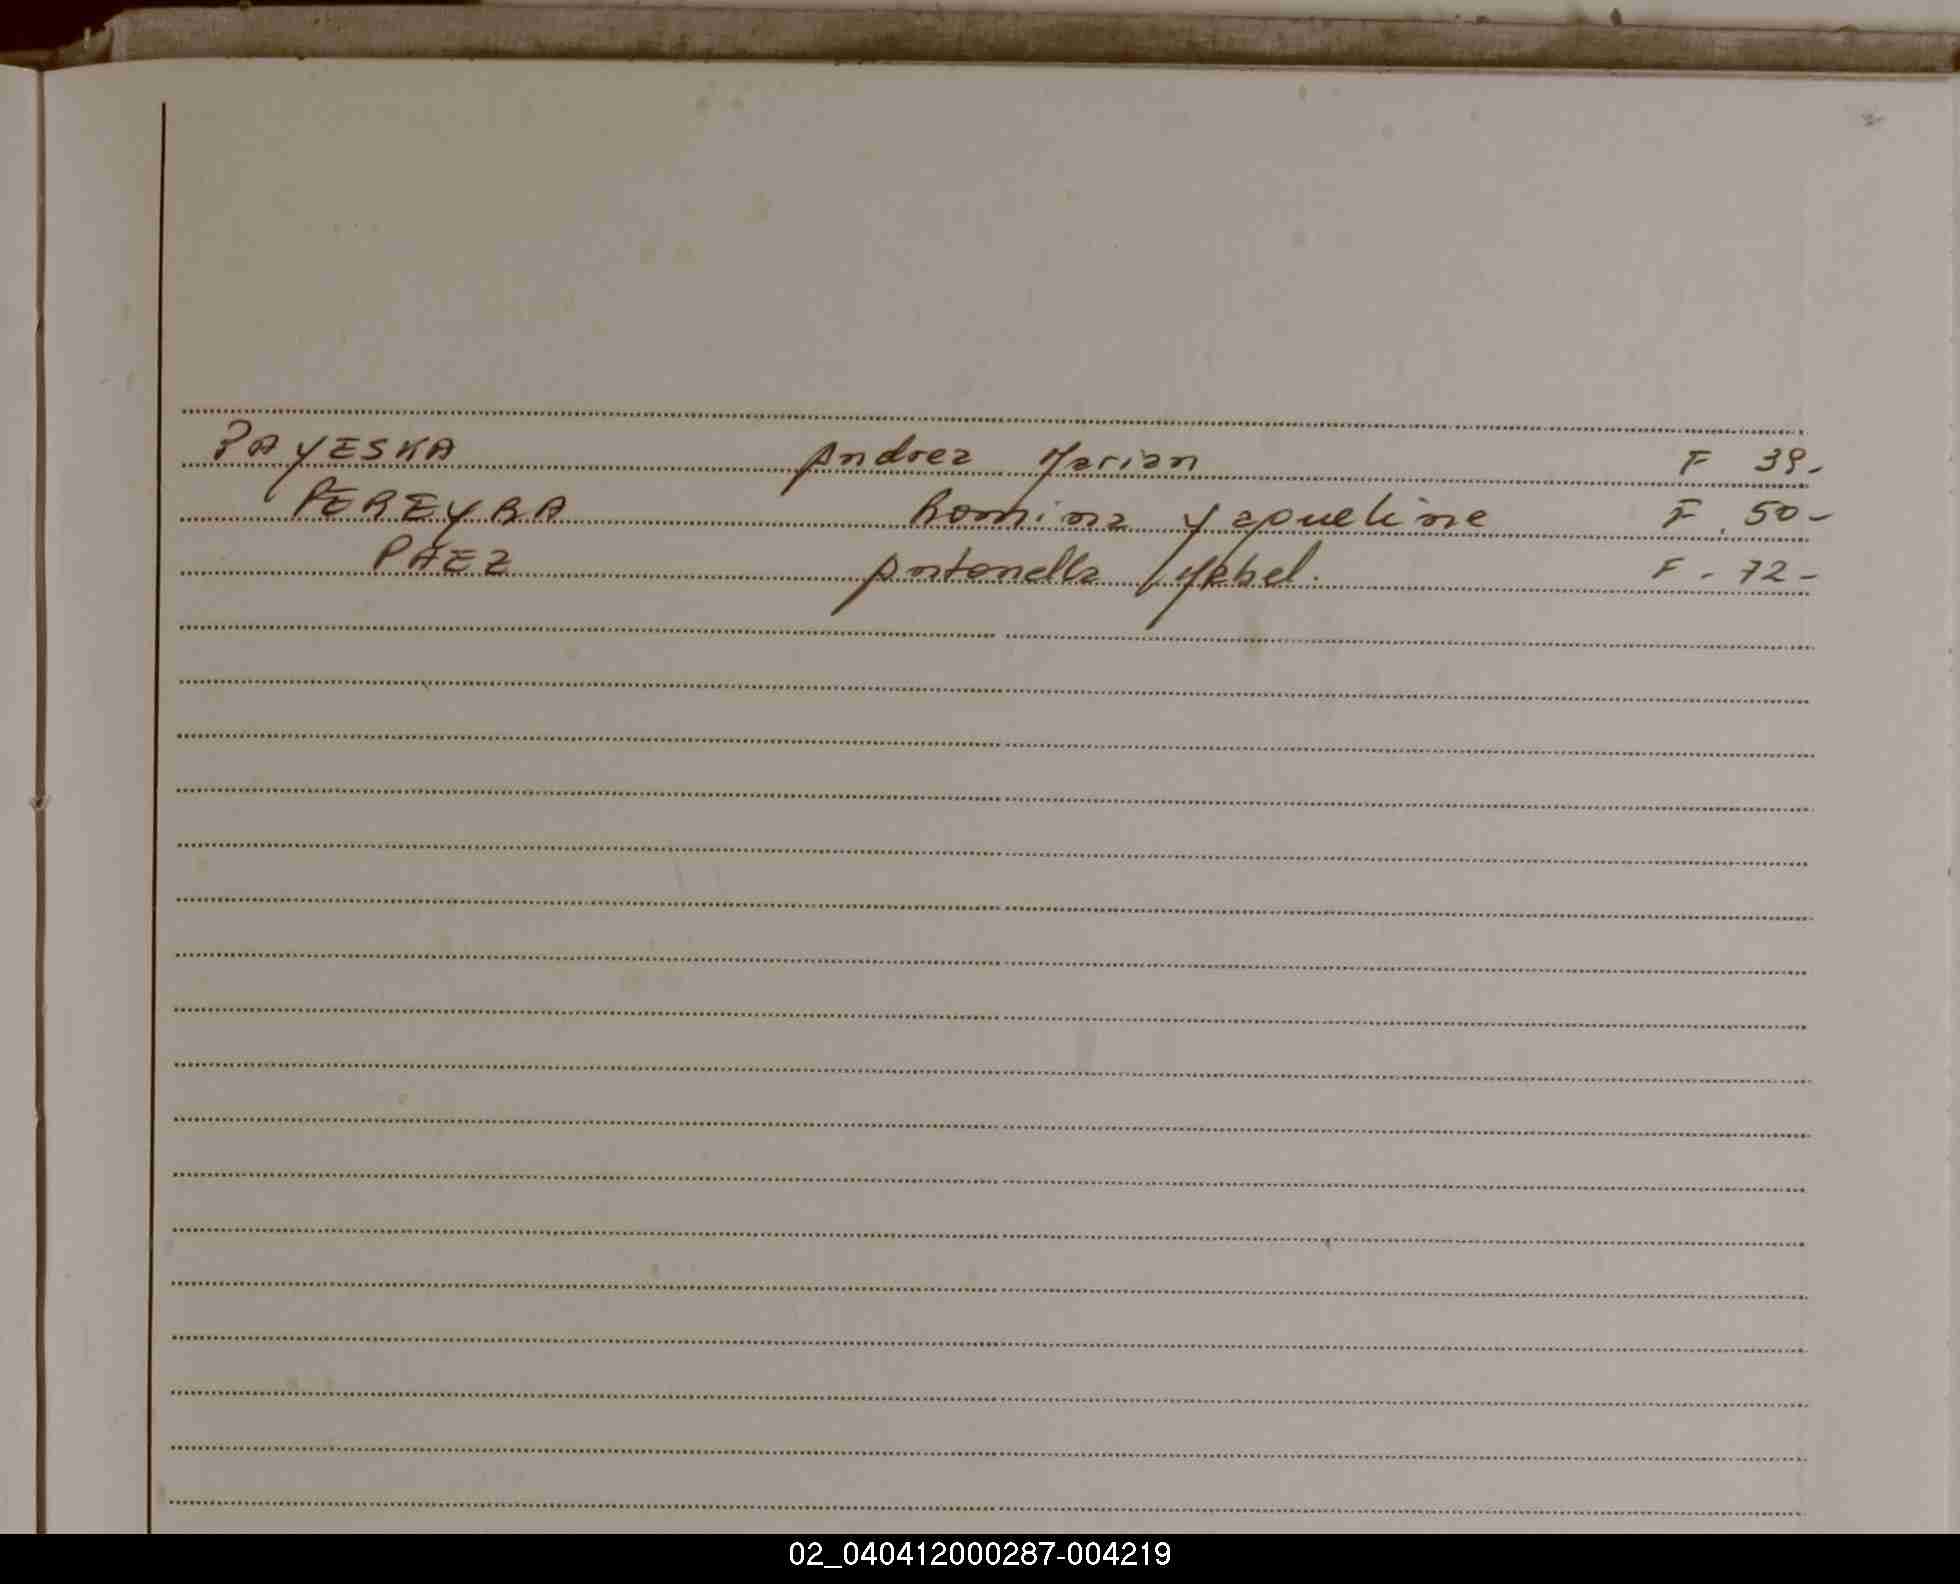 PAYESKA Andrea Marian F 39-
PEREYRA Romina Yaqueline F. 50-
PAEZ Antonella Mabel. F - 72-
02_040412000287-004219